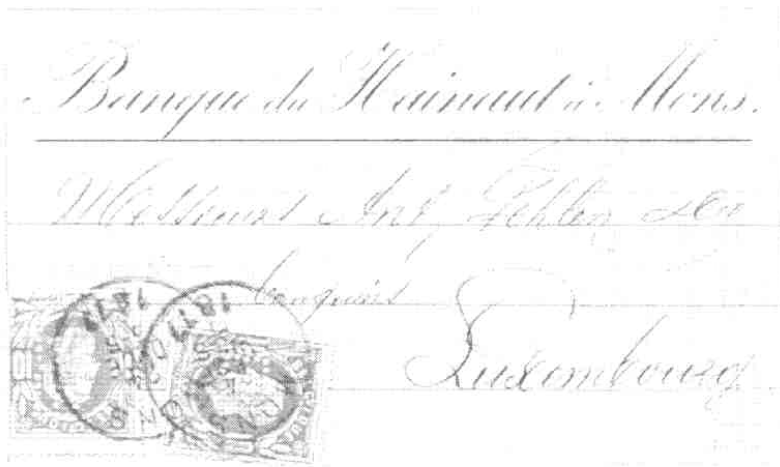 Banque du Hainaut à Mons.
Messieurs Ant. Pehlen & Co
banquiers
Luxembourg